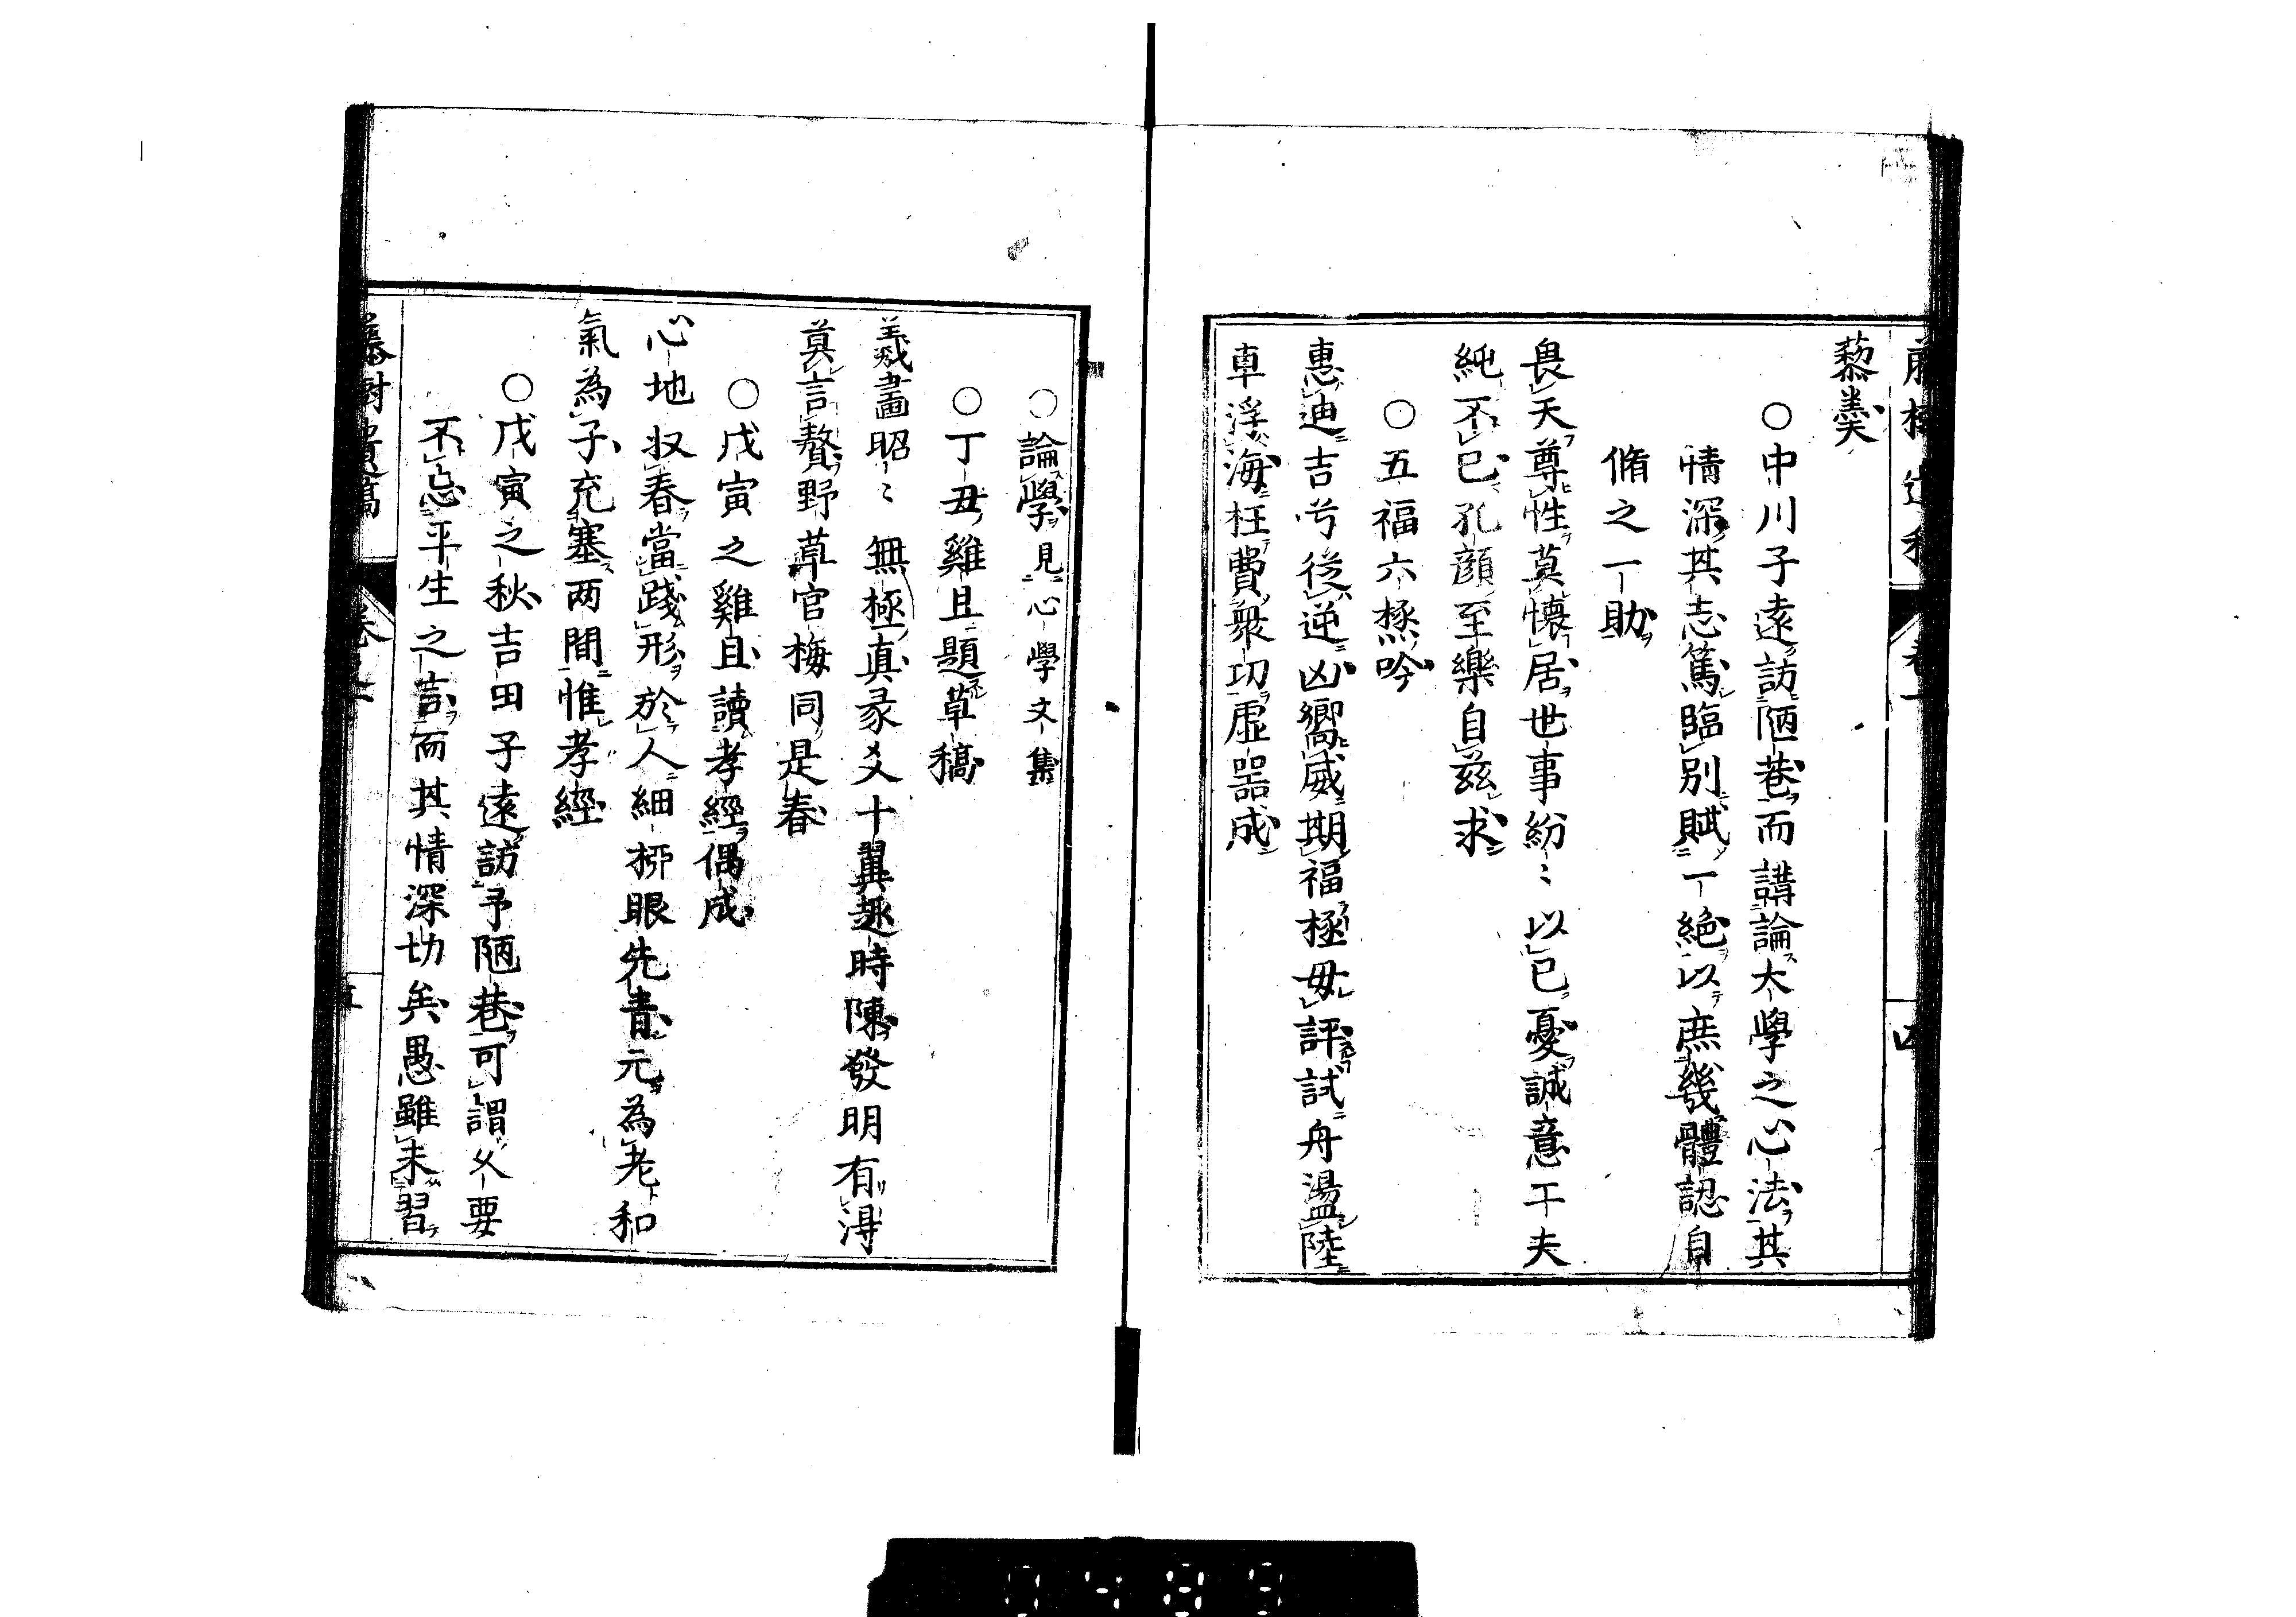 藜羹
○中川子遠訪陋巷而講論大學之心法其
情深其志篤臨別賦一絶以庶幾體認自
脩之一助
畏天尊性莫懐居世事紛〻以已憂誠意工夫
純不已孔顔至樂自玆求
○五福六極吟
惠迪吉兮從逆凶嚮威期福極毋評試舟盪陸
車浮海枉費衆功虚器成
○論學見心學文集
○丁丑雞旦題草稿
羲畫昭〻無極真彖爻十翼趣時陳發明有得
莫言贅野草官梅同是春
○戊寅之雞旦讀孝經偶成
心地收春當踐形於人細柳眼先青元為老和
氣為子充塞两間惟孝經
○戊寅之秋吉田子遠訪予陋巷可謂久要
不忘平生之言而其情深切矣愚雖未習
藤樹遺稿 卷一 五